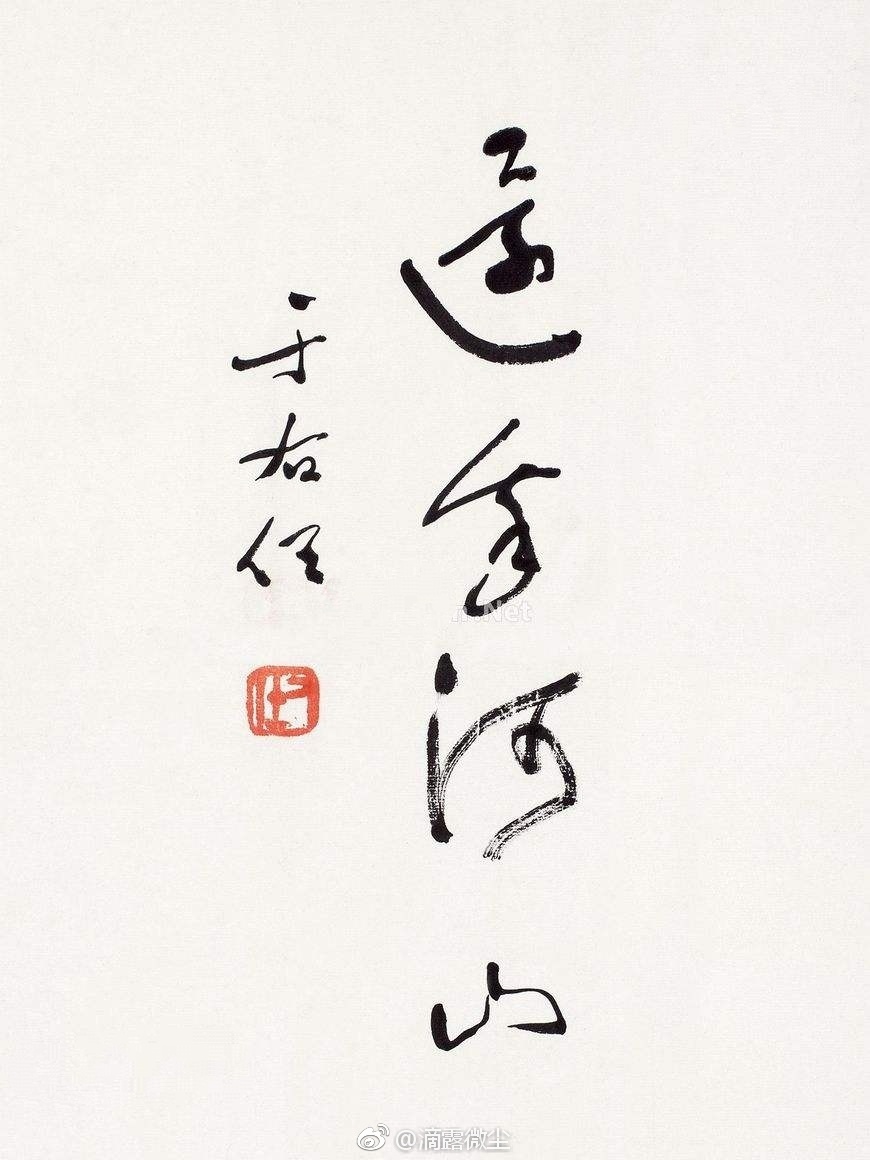 還我河山
于右任
@滴露微尘